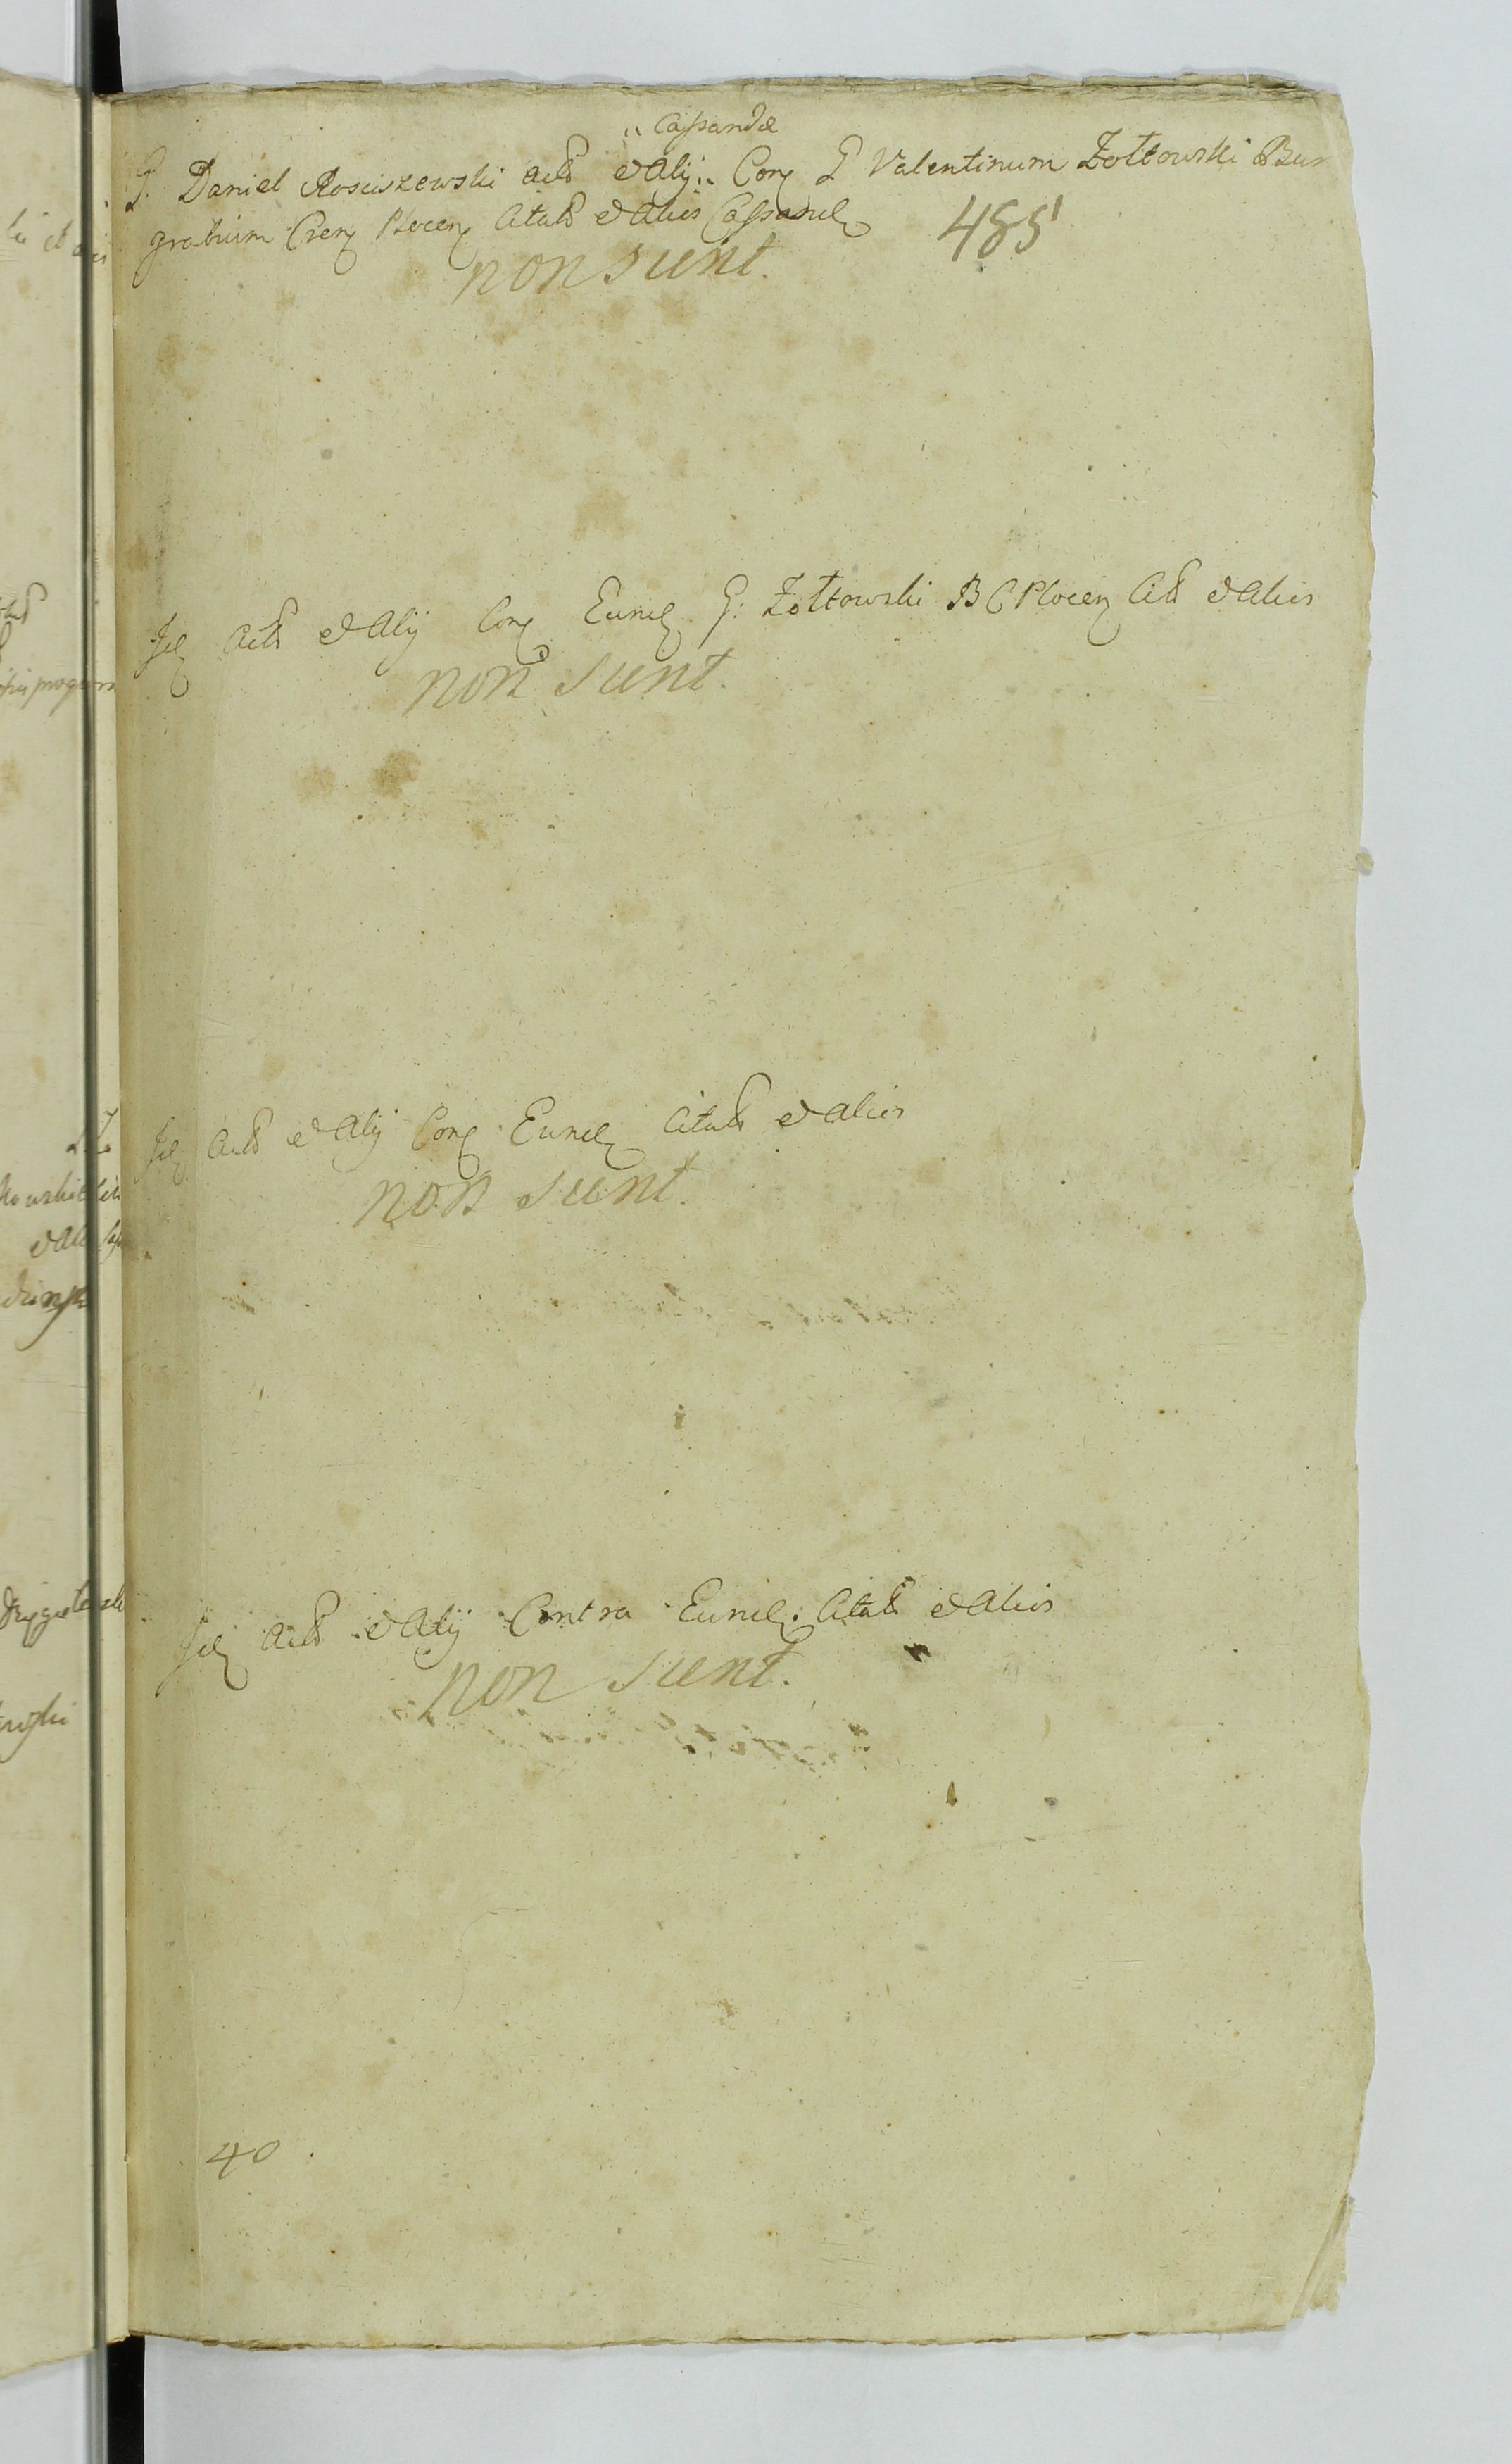 Cassandæ
G. Daniel Rosciszewski Actr et Alij Con G Valentinum Zołtowski Bur
grabium Cren Plocen Citatr et Alios Cassandᶒ 485
non sunt.
Idᶒ Actr et Alij Con Eundᶒ G: Zołtowski B C Plocen Citr et Alios
non sunt.
Idᶒ Actr et Alij Con Eundᶒ Citatr et Alios
non sunt.
Idᶒ Actr et Alij Contra Eundᶒ Citatr et Alios
non sunt.
40